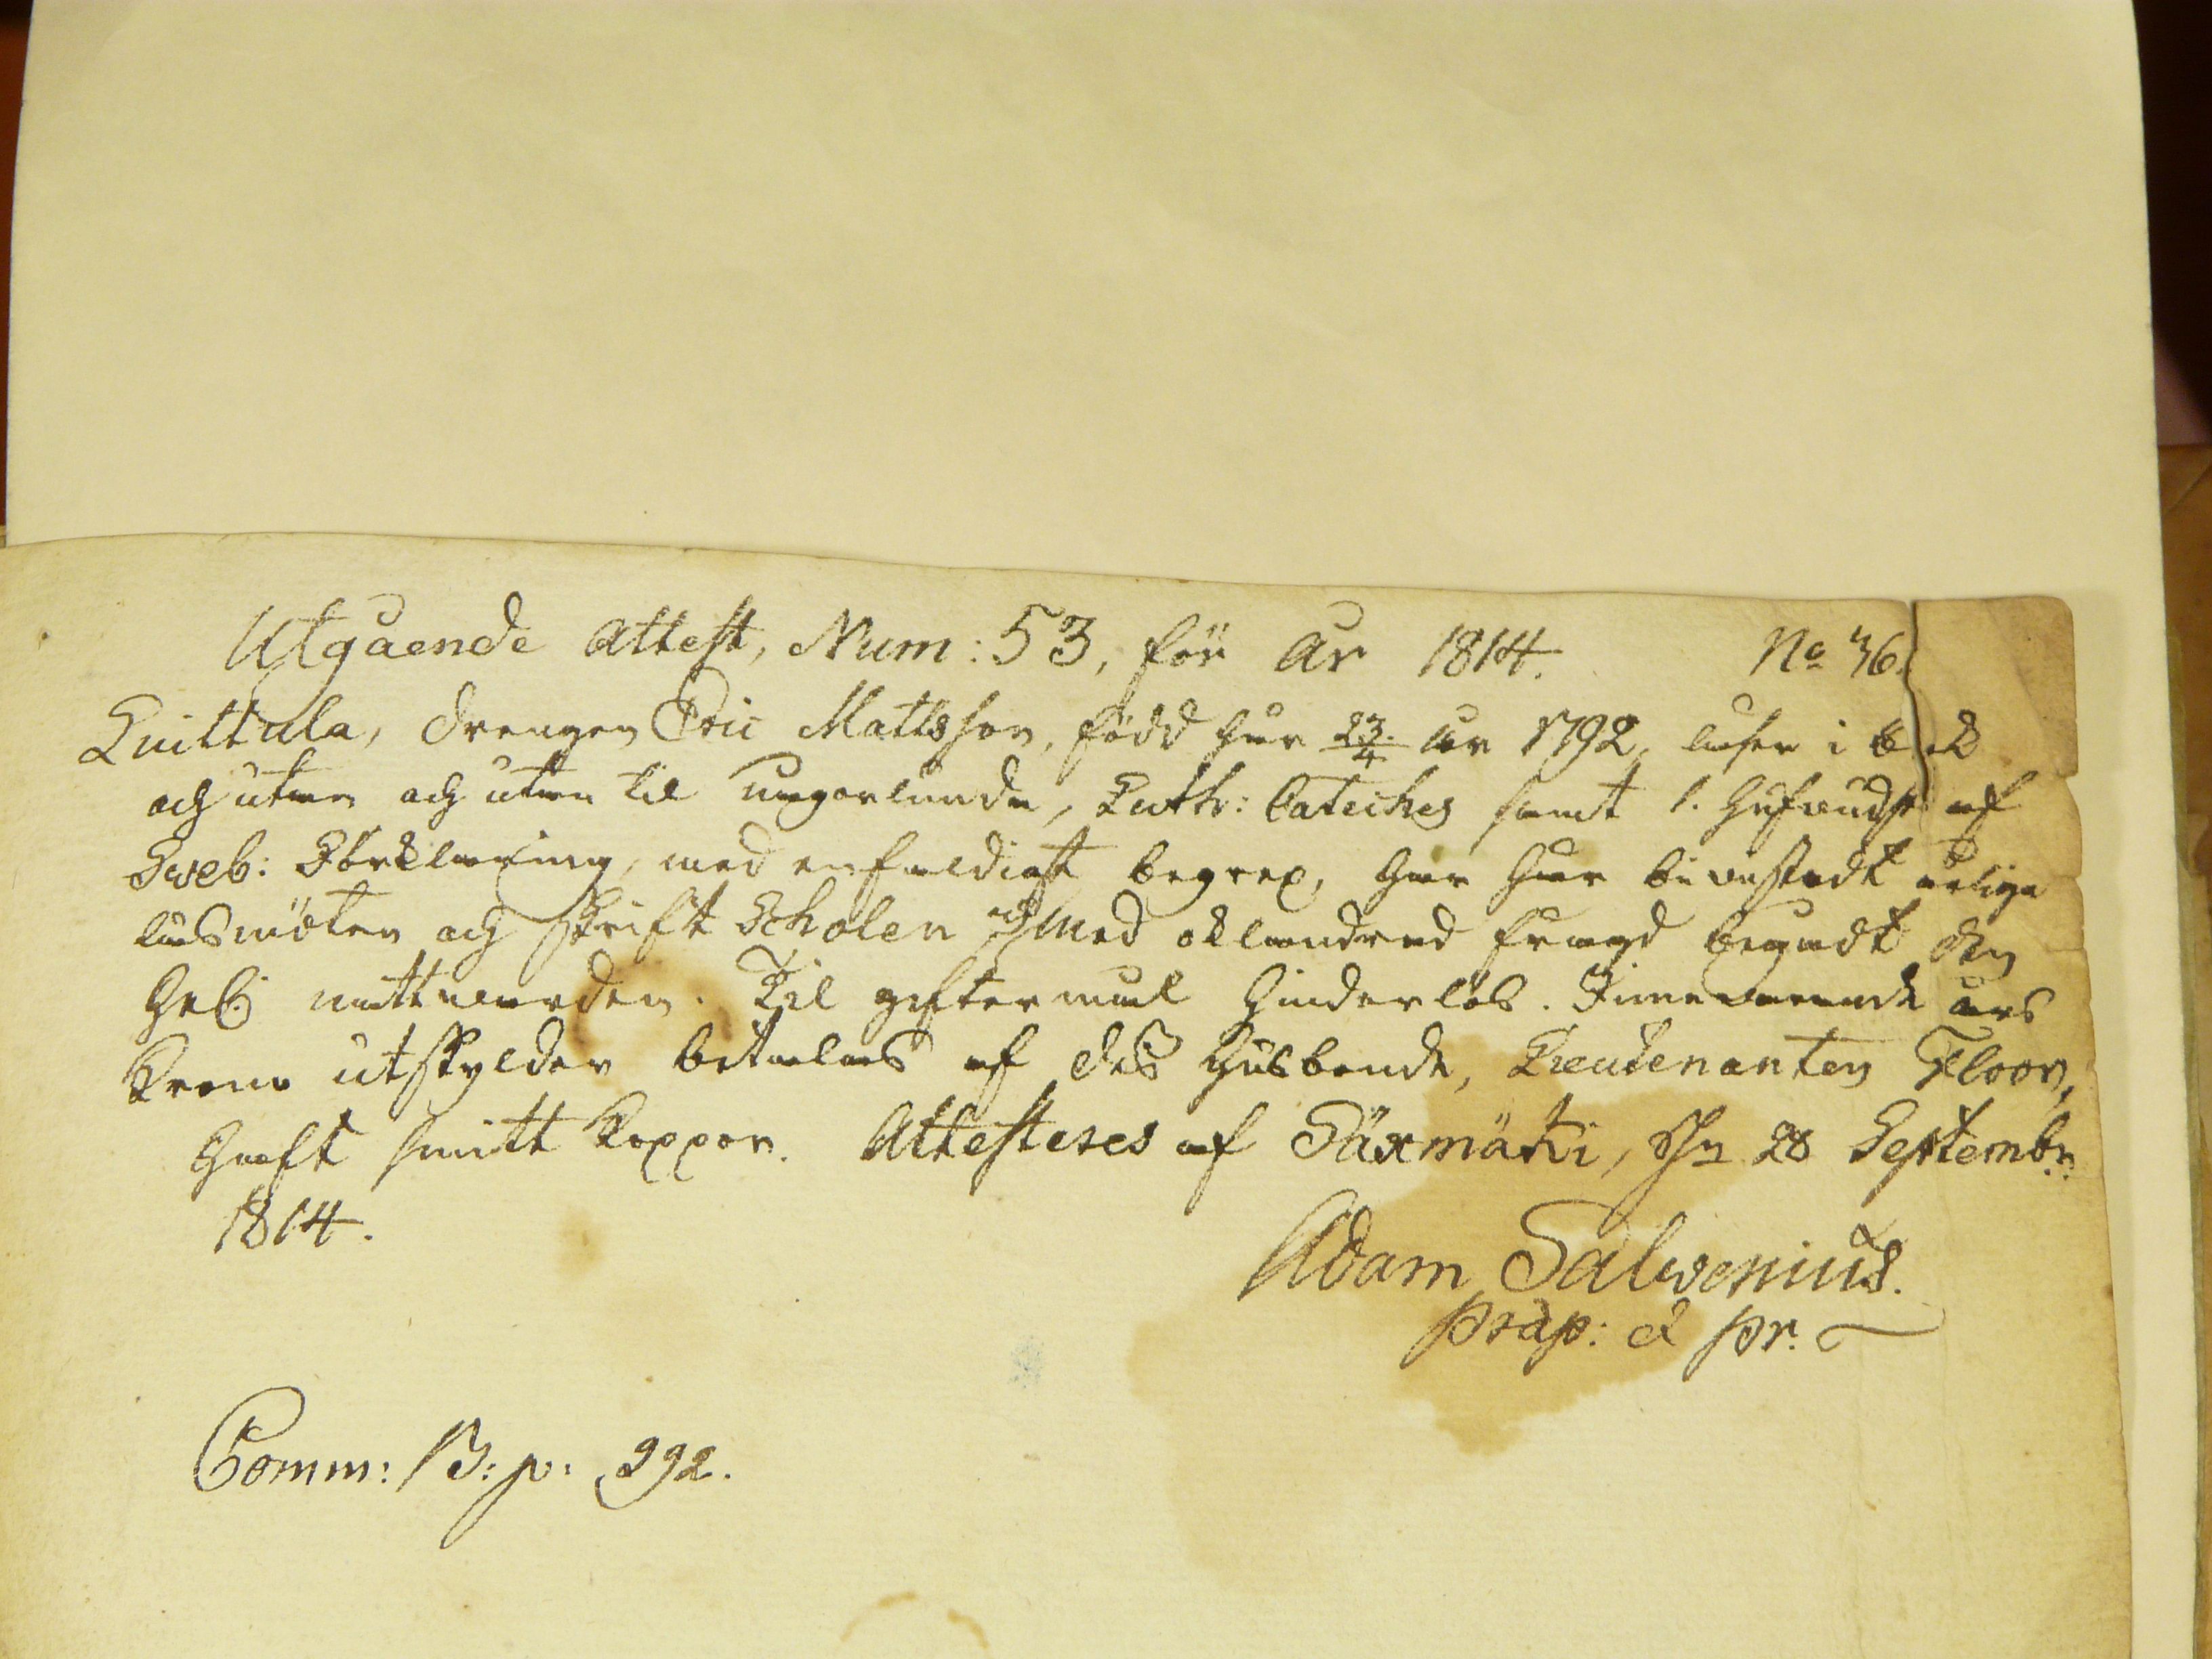 Utgående Attest, Num: 53, för År 1814. No 36.
Quittula, drengen Eric Mattsson, född här 23/4 År 1792, läser i bok
och utan och utan til någorlunda, Luth: Cateches samt 1. Hufvudst. af
Sveb: Förklaring, med enfaldigt begrep, har här bevistadt årliga
läsmöten och skrift Scholen och med oklandrad frägd begådt den
Hel: nattvarden. Til giftermål hinderlös. Innevarande års
Krono utskylder betalas af dess husbonde, Lieutenanten Floor,
haft smitt koppor. Attesteres af Säxmäki, d. 28 Septembr:
1814.
Adam Salvenius.
præp: & pr.
Comm: B: p: 292.